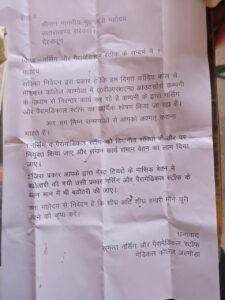 सेवा में
श्रीमान माननीय मुख्यमंत्री महोदय
उत्तराखण्ड सरकार
देहरादून
विषय - नर्सिंग और पैरामेडिकल स्टॉफ के सन्दर्भ में ।
महोदय
सविनय निवेदन इस प्रकार है कि हम विगत
मेडिकल कॉलेज अल्मोडा में आउटसोर्स कम्पनी
के माध्यम से निरन्तर कार्य कर रहे है कम्पनी के द्वारा नर्सिंग
और पैरामेडिकल स्टॉफ का आर्थिक शोषण किया जा रहा है।
अतः हम निम्न समस्याओं से आपको अवगत कराना
चाहते है।
नर्सिंग व पैरामेडिकल स्टॉफ को
नियुक्त किया जाए और समान कार्य समान वेतन का लाभ दिया
जाए।
जिस प्रकार आपके द्वारा गेस्ट टिचरो के मासिक वेतन में
बढोत्तरी की गयी उसी प्रकार नर्सिंग और पैरामेडिकल स्टॉफ के
वेतन मान में भी बढोतरी की जाए।
महोदय से निवेदन है कि शीघ्र अति शीघ्र हमारी मांगे पूरी
करने की कृपा करे।
धन्यवाद
समस्त नर्सिंग और पैरामेडिकल स्टॉफ
मेडिकल कॉलेज अल्मोडा